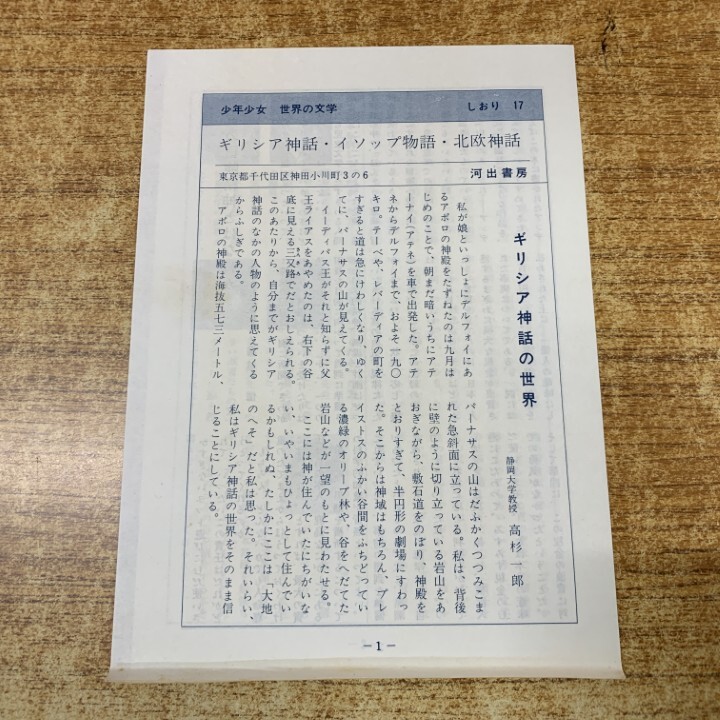 少年少女 世界の文学 しおり 17
ギリシア神話・イソップ物語・北欧神話
東京都千代田区神田小川町3の6 河出書房
ギリシア神話の世界
静岡大学教授 高杉一郎
私が娘といっしょにデルフォイにあ
るアポロの神殿をたずねたのは九月は
じめのことで、朝まだ暗いうちにアテ
ーナイ(アテネ)を車で出発した。アテ
ネからデルフォイまで、およそ一九〇
キロ。テーベや、レバーディアの町を
すぎると道は急にけわしくなり、ゆく
てに、パーナサスの山が見えてくる。
イーディパス王がそれと知らずに父
王ライアスをあやめたのは、右下の谷
底に見える三叉路でだとおしえられる。
このあたりから、自分までがギリシア
神話のなかの人物のように思えてくる
からふしぎである。
アポロの神殿は海抜五七三メートル、
パーナサスの山はだふかくつつみこま
れた急斜面に立っている。私は、背後
に壁のように切り立っている岩山をあ
おぎながら、敷石道をのぼり、神殿を
とおりすぎて、半円形の劇場にすわっ
た。そこからは神域はもちろん、プレ
イストスのふかい谷間をふちどってい
る濃緑のオリーブ林や、谷をへだてた
岩山などが一望のもとに見わたせる。
ここには神が住んでいたにちがいな
い、いやいまもひょっとして住んでい
るかもしれぬ、たしかにここは「大地
のへそ」だと私は思った。それいらい、
私はギリシア神話の世界をそのまま信
じることにしている。
－1－